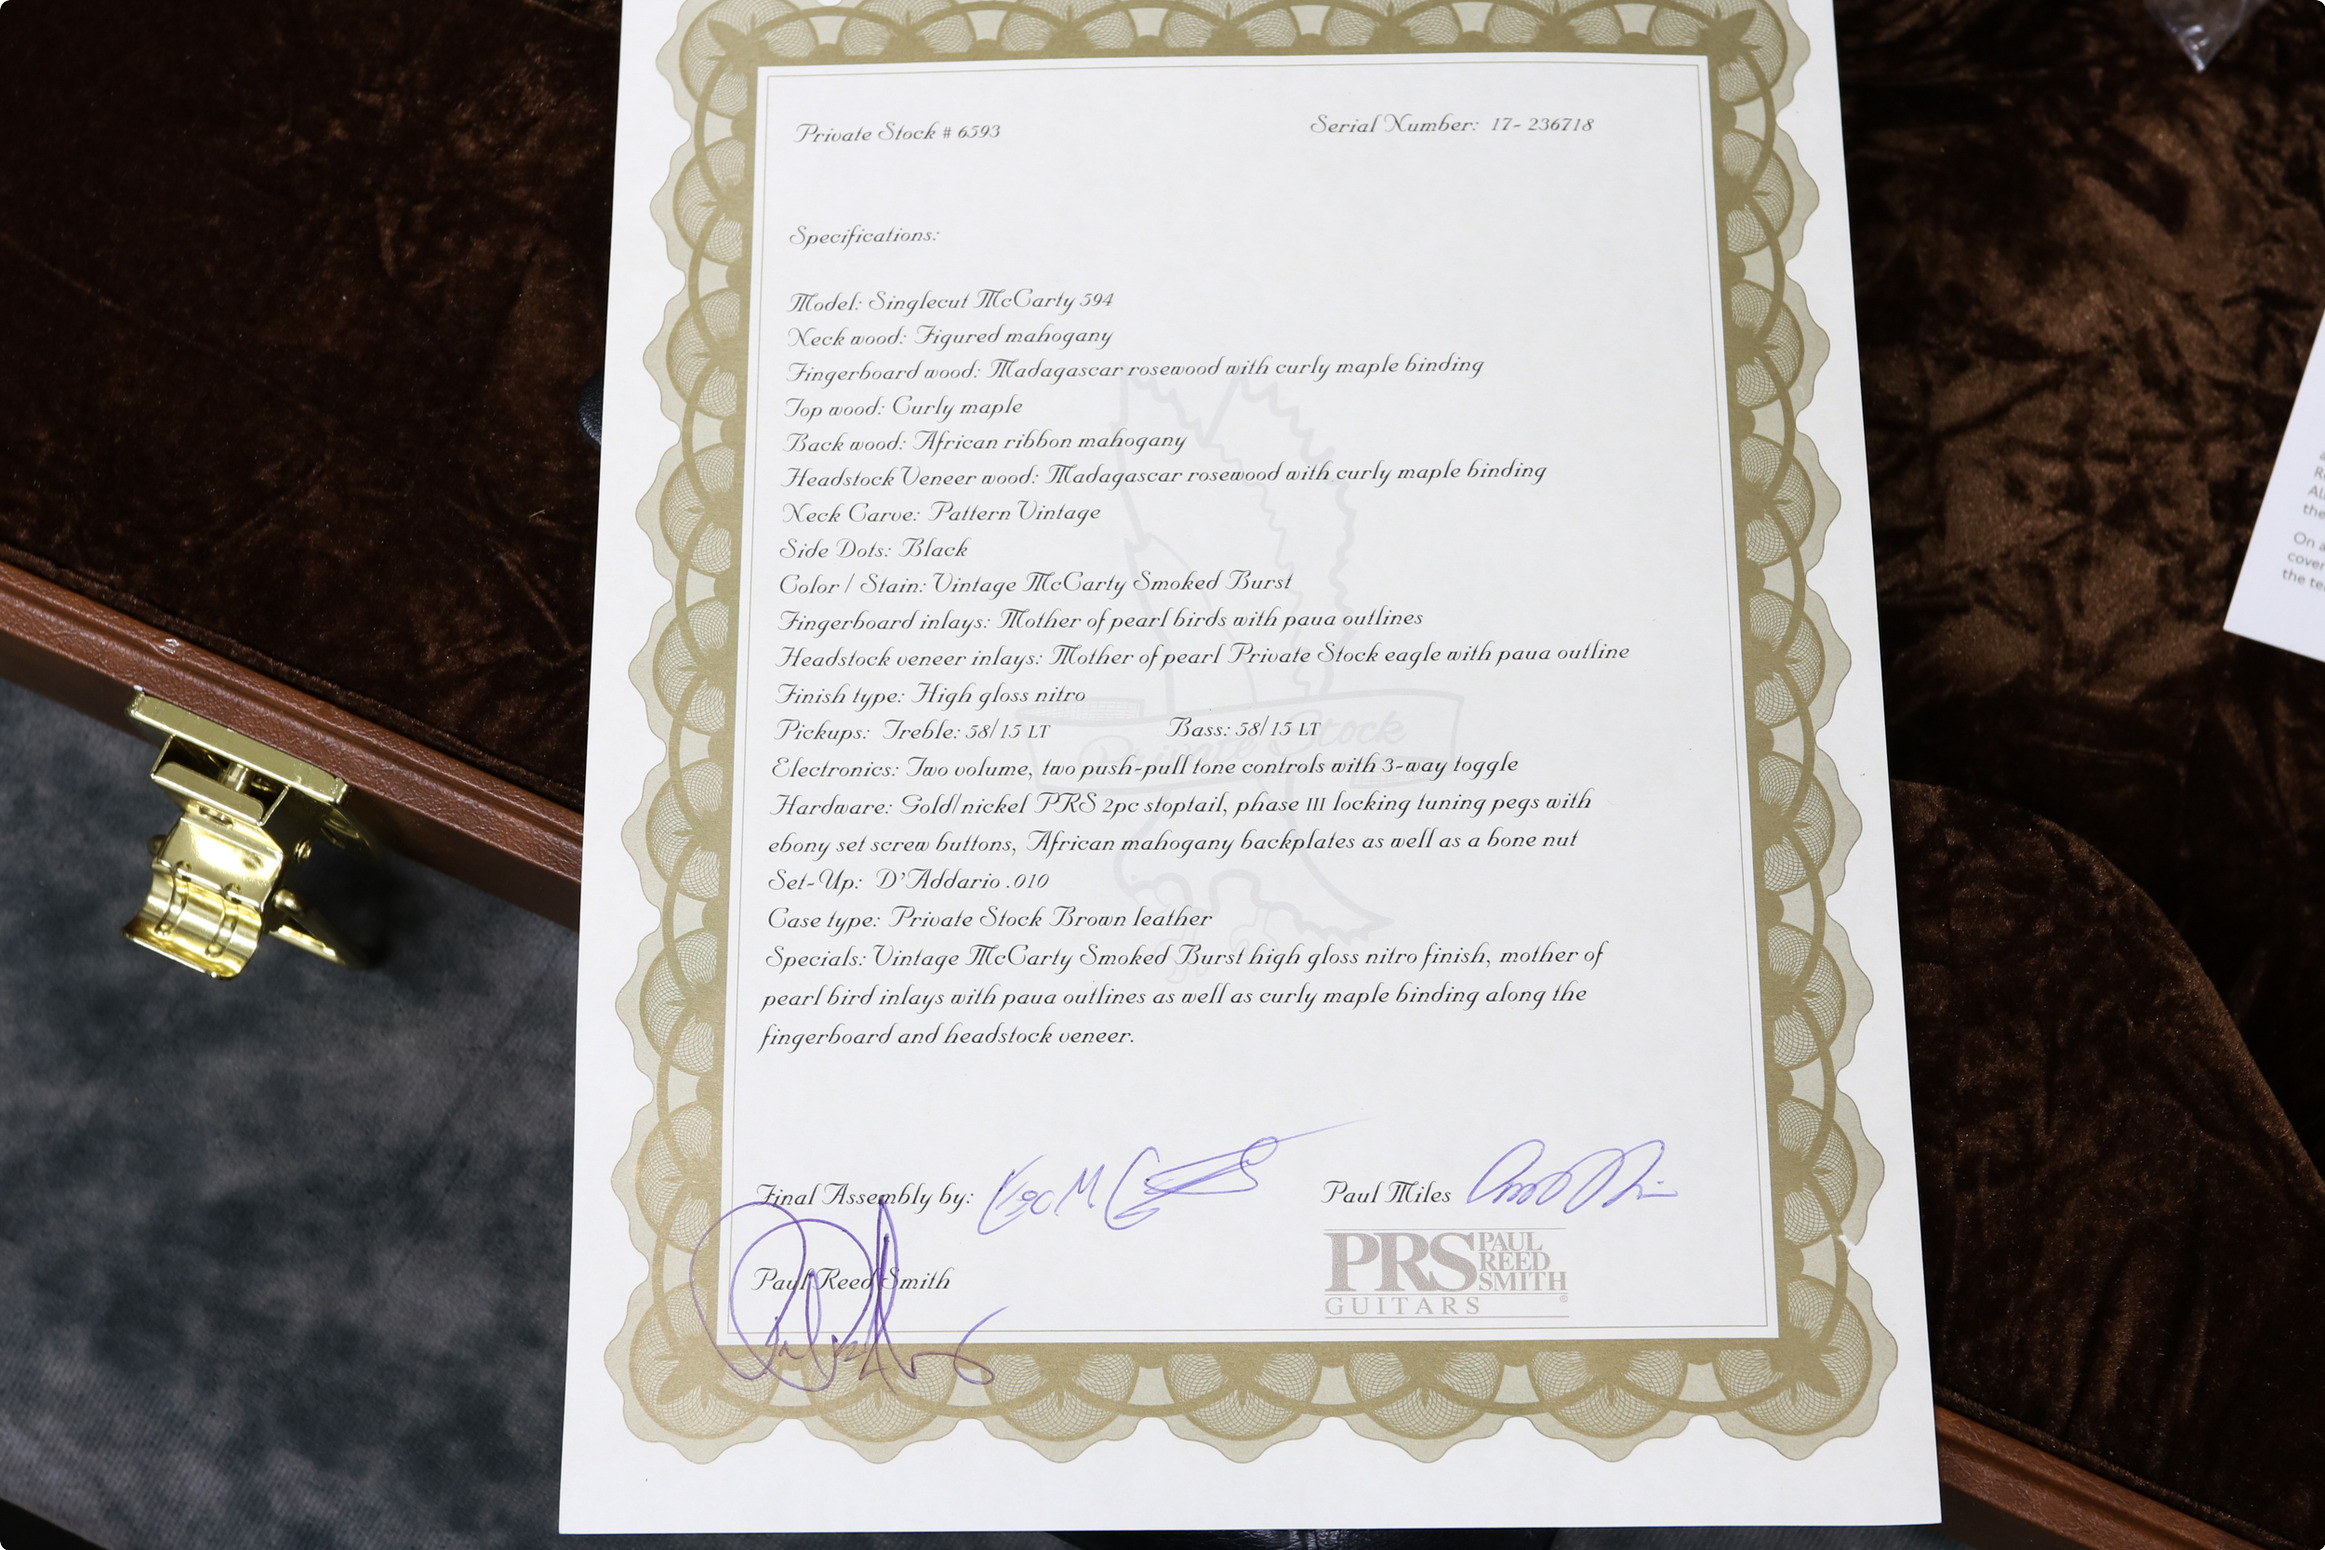 Private Stock # 6593
Serial Number: 17- 236718
Specifications:
Model: Singlecut McCarty 594
Neck wood: Figured mahogany
Fingerboard wood: Madagascar rosewood with curly maple binding
Top wood: Curly maple
Back wood: African ribbon mahogany
Headstock Veneer wood: Madagascar rosewood with curly maple binding
Neck Carve: Pattern Vintage
Side Dots: Black
Color / Stain: Vintage McCarty Smoked Burst
Fingerboard inlays: Mother of pearl birds with paua outlines
Headstock veneer inlays: Mother of pearl Private Stock eagle with paua outline
Finish type: High gloss nitro
Pickups: Treble: 58/15 LT Bass: 58/15 LT
Private Stock
Electronics: Two volume, two push-pull tone controls with 3-way toggle
Hardware: Gold/nickel PRS 2pc stoptail, phase III locking tuning pegs with
ebony set screw buttons, African mahogany backplates as well as a bone nut
Set-Up: D'Addario .010
Case type: Private Stock Brown leather
Specials: Vintage McCarty Smoked Burst high gloss nitro finish, mother of
pearl bird inlays with paua outlines as well as curly maple binding along the
fingerboard and headstock veneer.
Final Assembly by:
Paul Miles
Paul Reed Smith
PRS PAUL
REED
SMITH
GUITARS ®
the
On a
cover
the te